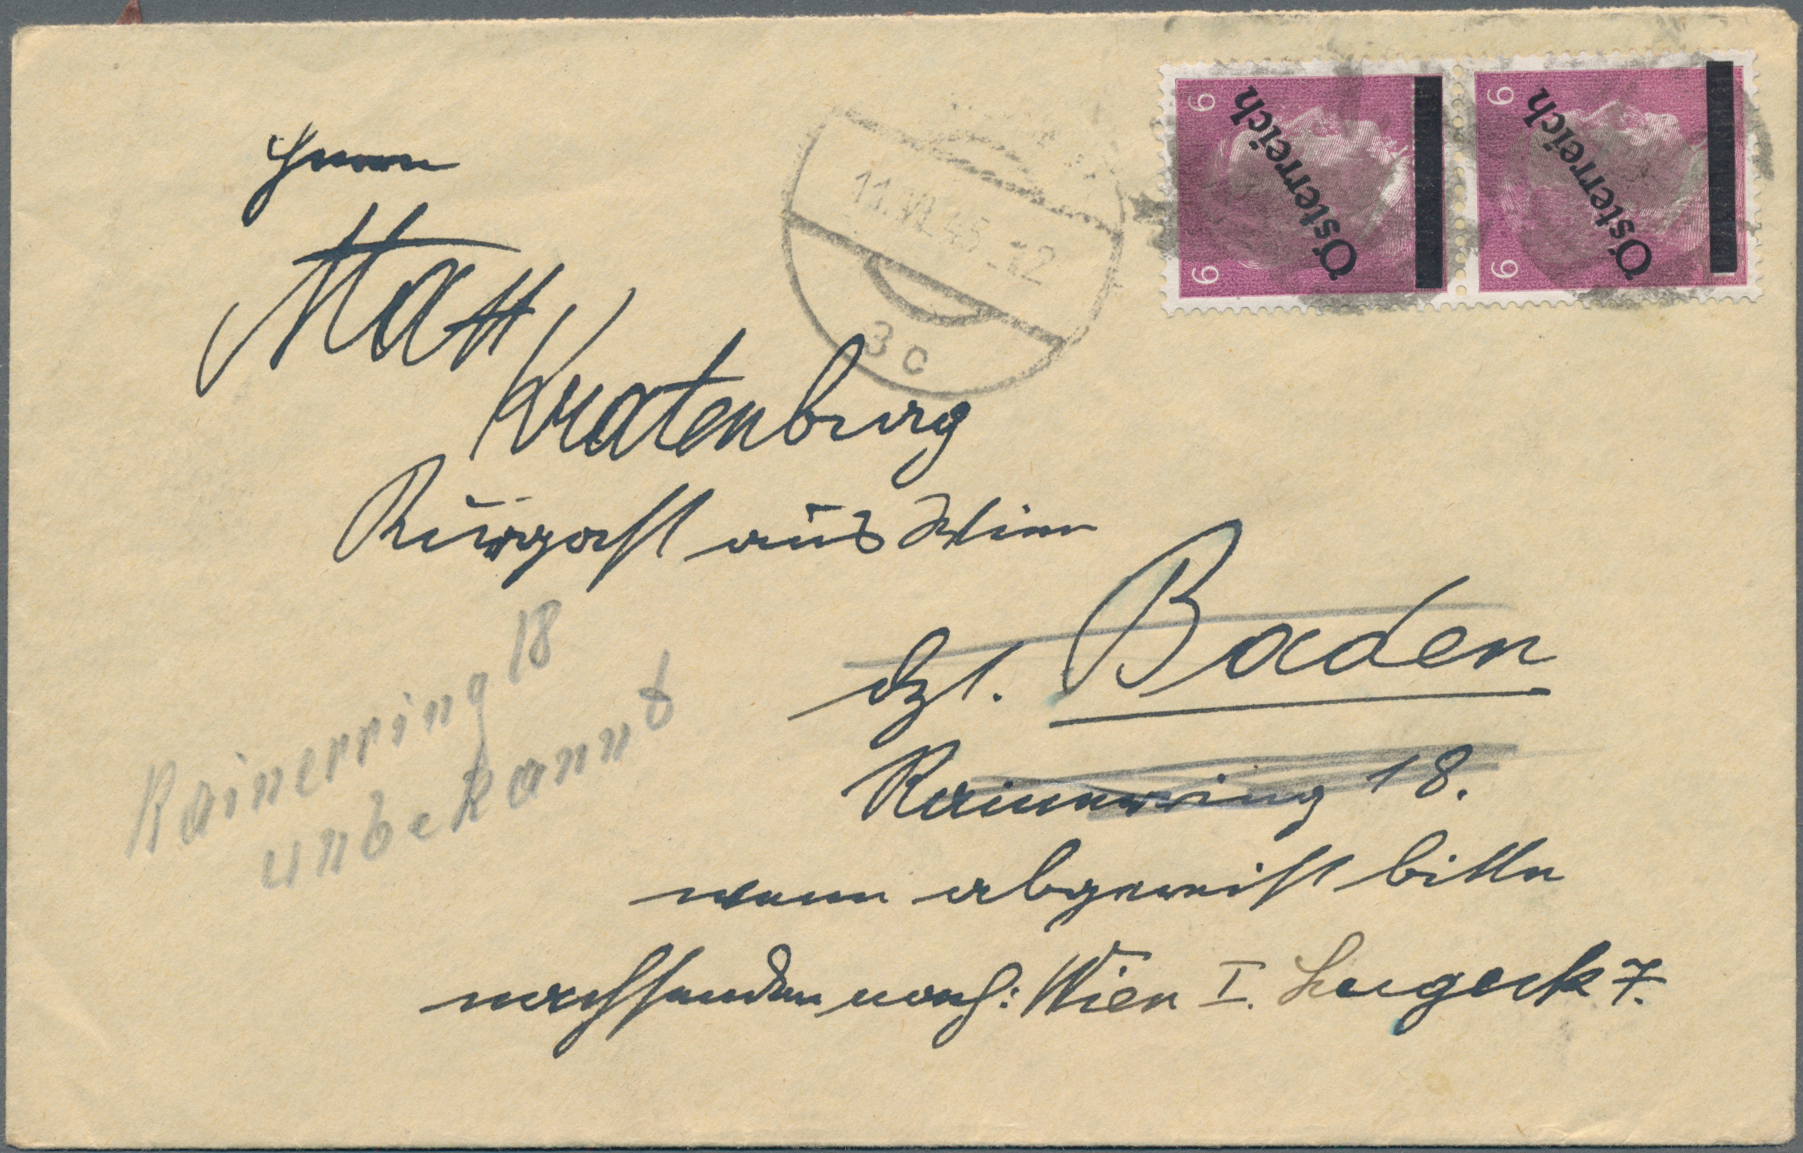 Herrn
Max
Kratenburg
Kurgast aus Wien
dzt. Baden
Rainerring 18.
wenn abgereist bitte
nachsenden nach: Wien I. Lugeck 7.
Rainerring 18
unbekannt
11.VI.45.-12
3c
6 6
Österreich
6 6
Österreich